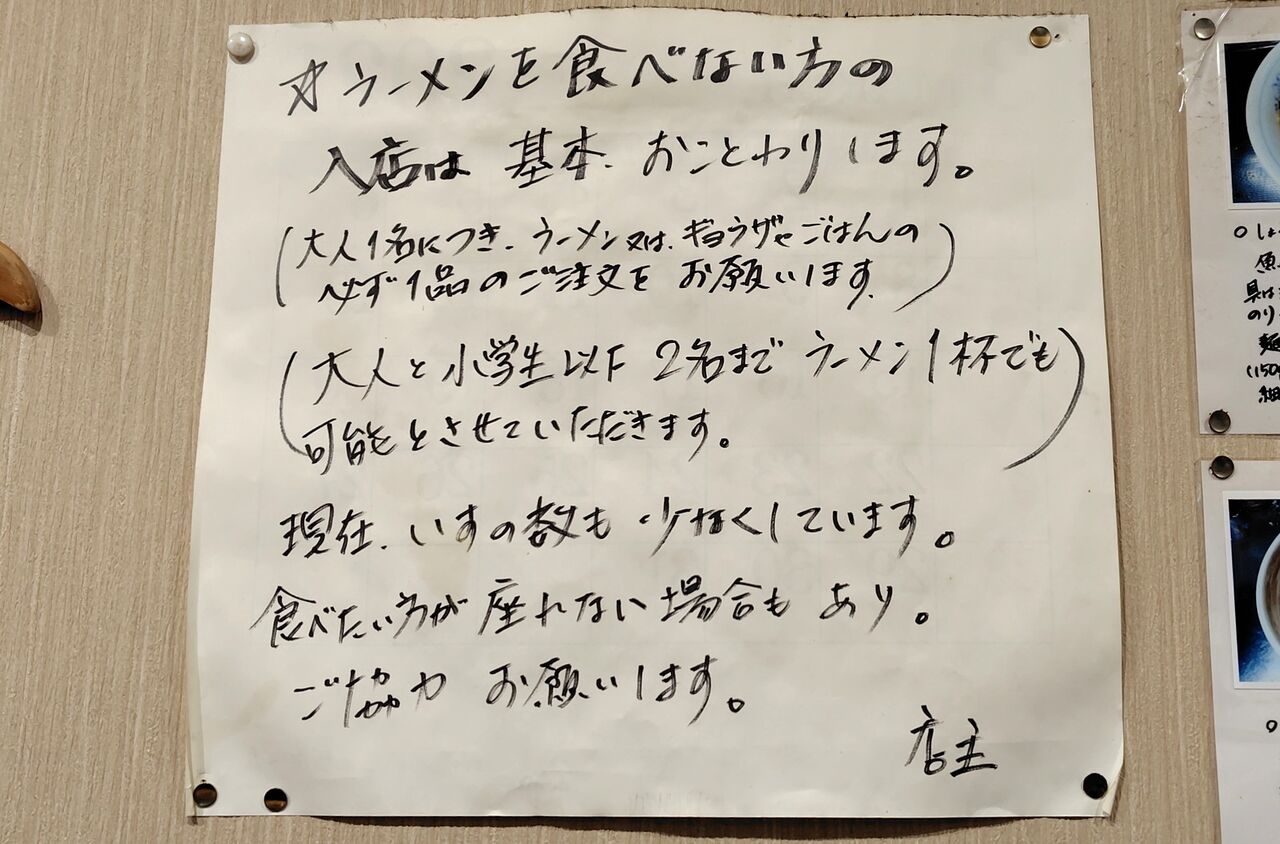 ☆ラーメンを食べない方の
入店は基本、おことわりします。
(大人1名につき、ラーメン又は、ギョウザやごはんの
必ず1品のご注文をお願いします。)
(大人と小学生以下2名までラーメン1杯でも
可能とさせていただきます。)
現在、いすの数も少なくしています。
食べたい方が座れない場合もあり。
ご協力お願いします。
店主